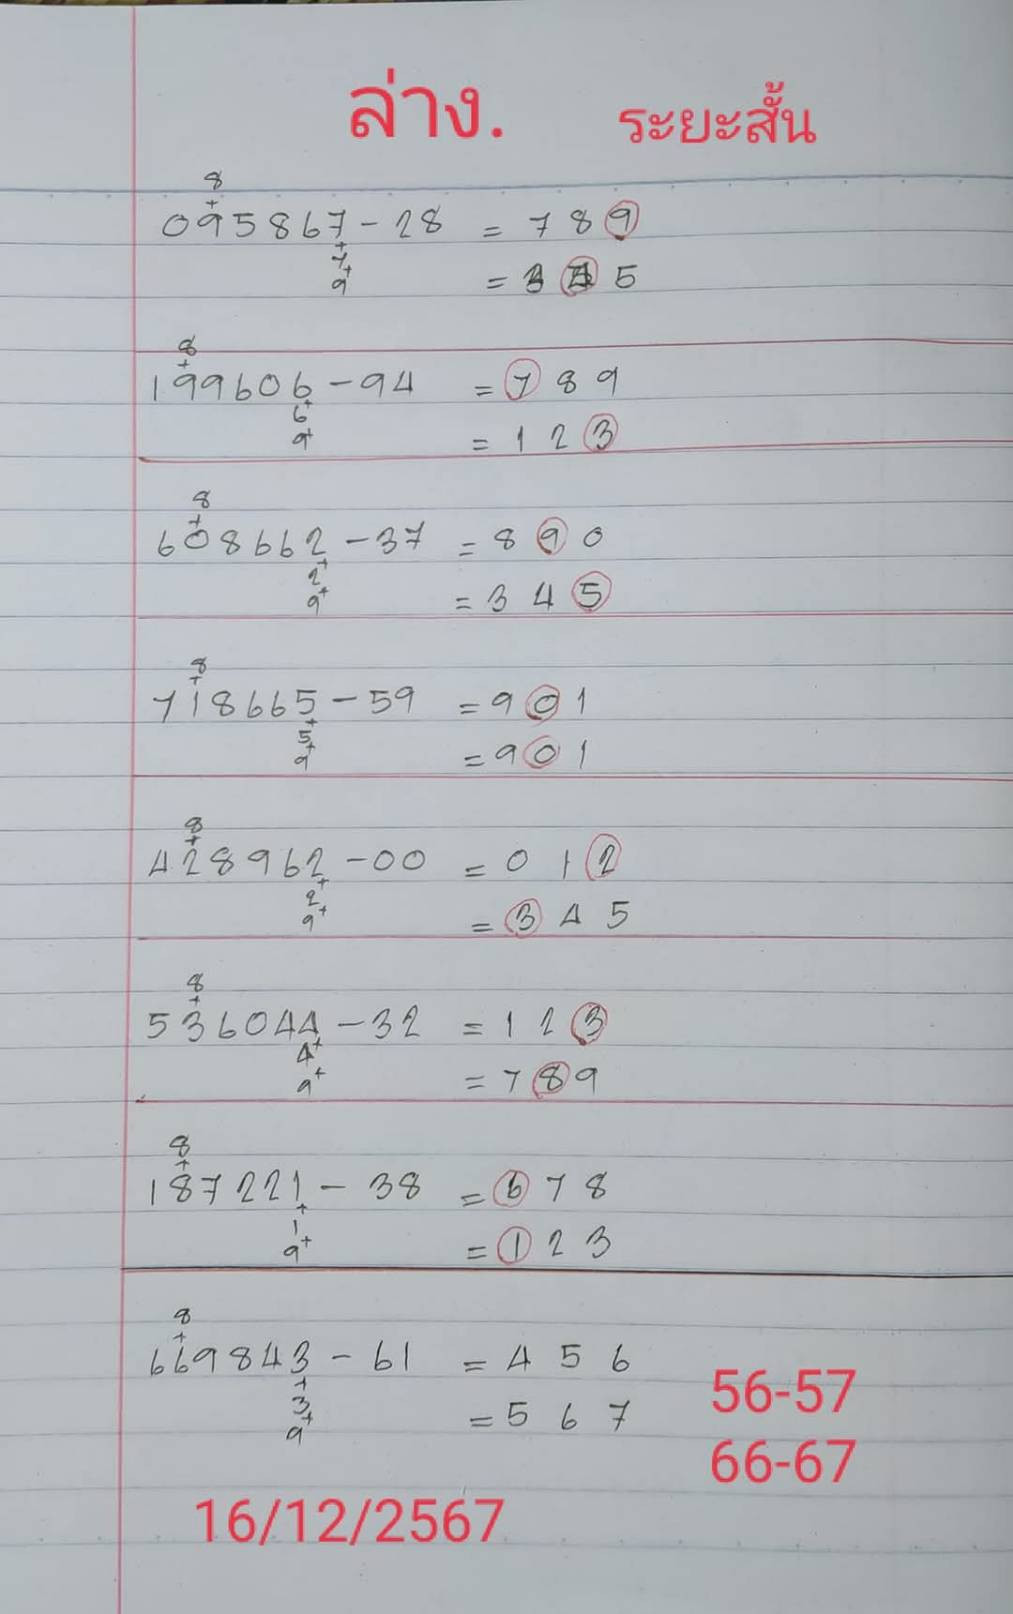 ล่าง. ระยะสั้น
8
+
095867-28 = 789
+
7
+
9 = 5
8
+
199606-94 = 789
+
6
+
9 = 123
8
+
608662-37 = 890
+
2
+
9 = 345
8
+
718665-59 = 901
+
5
+
9 = 901
8
+
428962-00 = 012
+
2
+
9 = 345
8
+
536044-32 = 123
+
4
+
9 = 789
8
+
187221-38 = 678
+
1
+
9 = 123
8
+
669843-61 = 456
+
3
+
9 = 567
56-57
66-67
16/12/2567